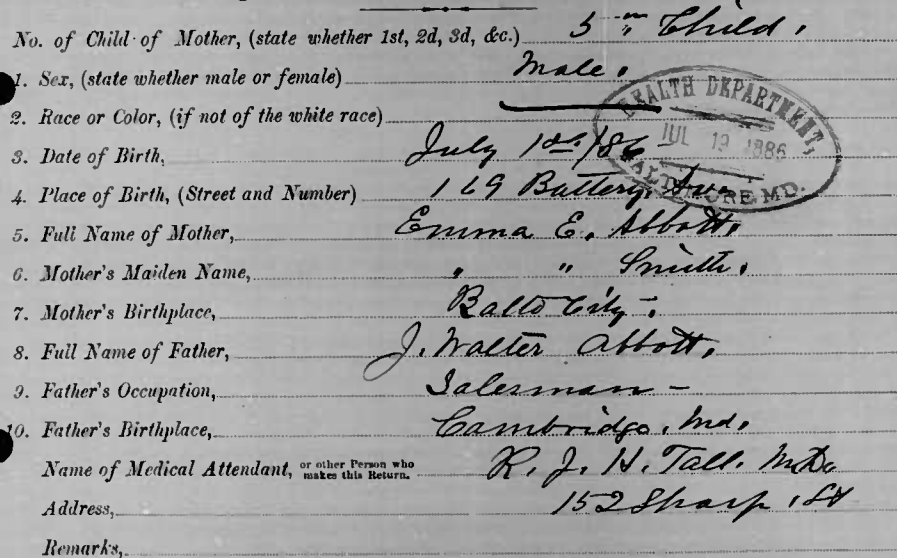 No. of Child of Mother, (state whether 1st, 2d, 3d, &c.) 5th Child.
1. Sex, (state whether male or female) Male.
2. Race or Color, (if not of the white race)
HEALTH DEPARTMENT,
JUL 19 1886
BALTIMORE MD.
3. Date of Birth, July 1st/86
4. Place of Birth, (Street and Number) 169 Battery Ave
5. Full Name of Mother, Emma E. Abbott.
6. Mother's Maiden Name, " " Smith.
7. Mother's Birthplace, Balto City.
8. Full Name of Father, J. Walter Abbott.
9. Father's Occupation, Salesman -
10. Father's Birthplace, Cambridge. Md.
Name of Medical Attendant, or other Person who makes this Return. R. J. H. Tall. M.D.
Address, 152 Sharp St
Remarks,